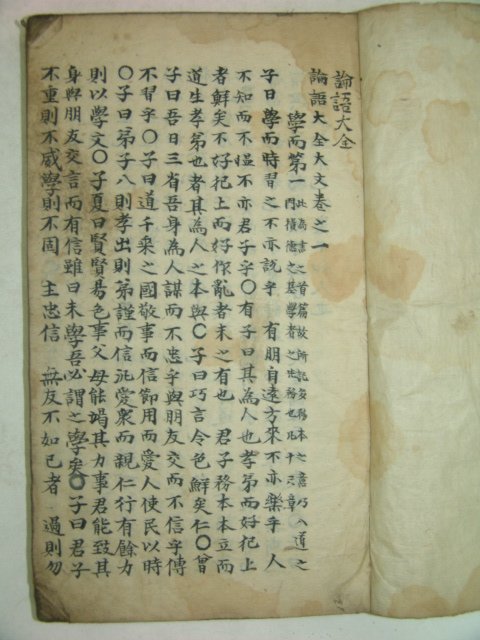 論語大全
論語大全大文卷之一
學而第一 此爲書之首篇故所記多務本之意乃入道之
門積德之基學者之先務也凡十六章
子曰學而時習之不亦說乎 有朋自遠方來不亦樂乎 人
不知而不慍不亦君子乎〇有子曰其爲人也孝弟而好犯上
者鮮矣不好犯上而好作亂者未之有也 君子務本本立而
道生孝弟也者其爲人之本與〇子曰巧言令色鮮矣仁〇曾
子曰吾日三省吾身爲人謀而不忠乎與朋友交而不信乎傳
不習乎〇子曰道千乘之國敬事而信節用而愛人使民以時
〇子曰弟子入則孝出則弟謹而信汎愛衆而親仁行有餘力
則以學文〇子夏曰賢賢易色事父母能竭其力事君能致其
身與朋友交言而有信雖曰未學吾必謂之學矣〇子曰君子
不重則不威學則不固 主忠信 無友不如己者 過則勿